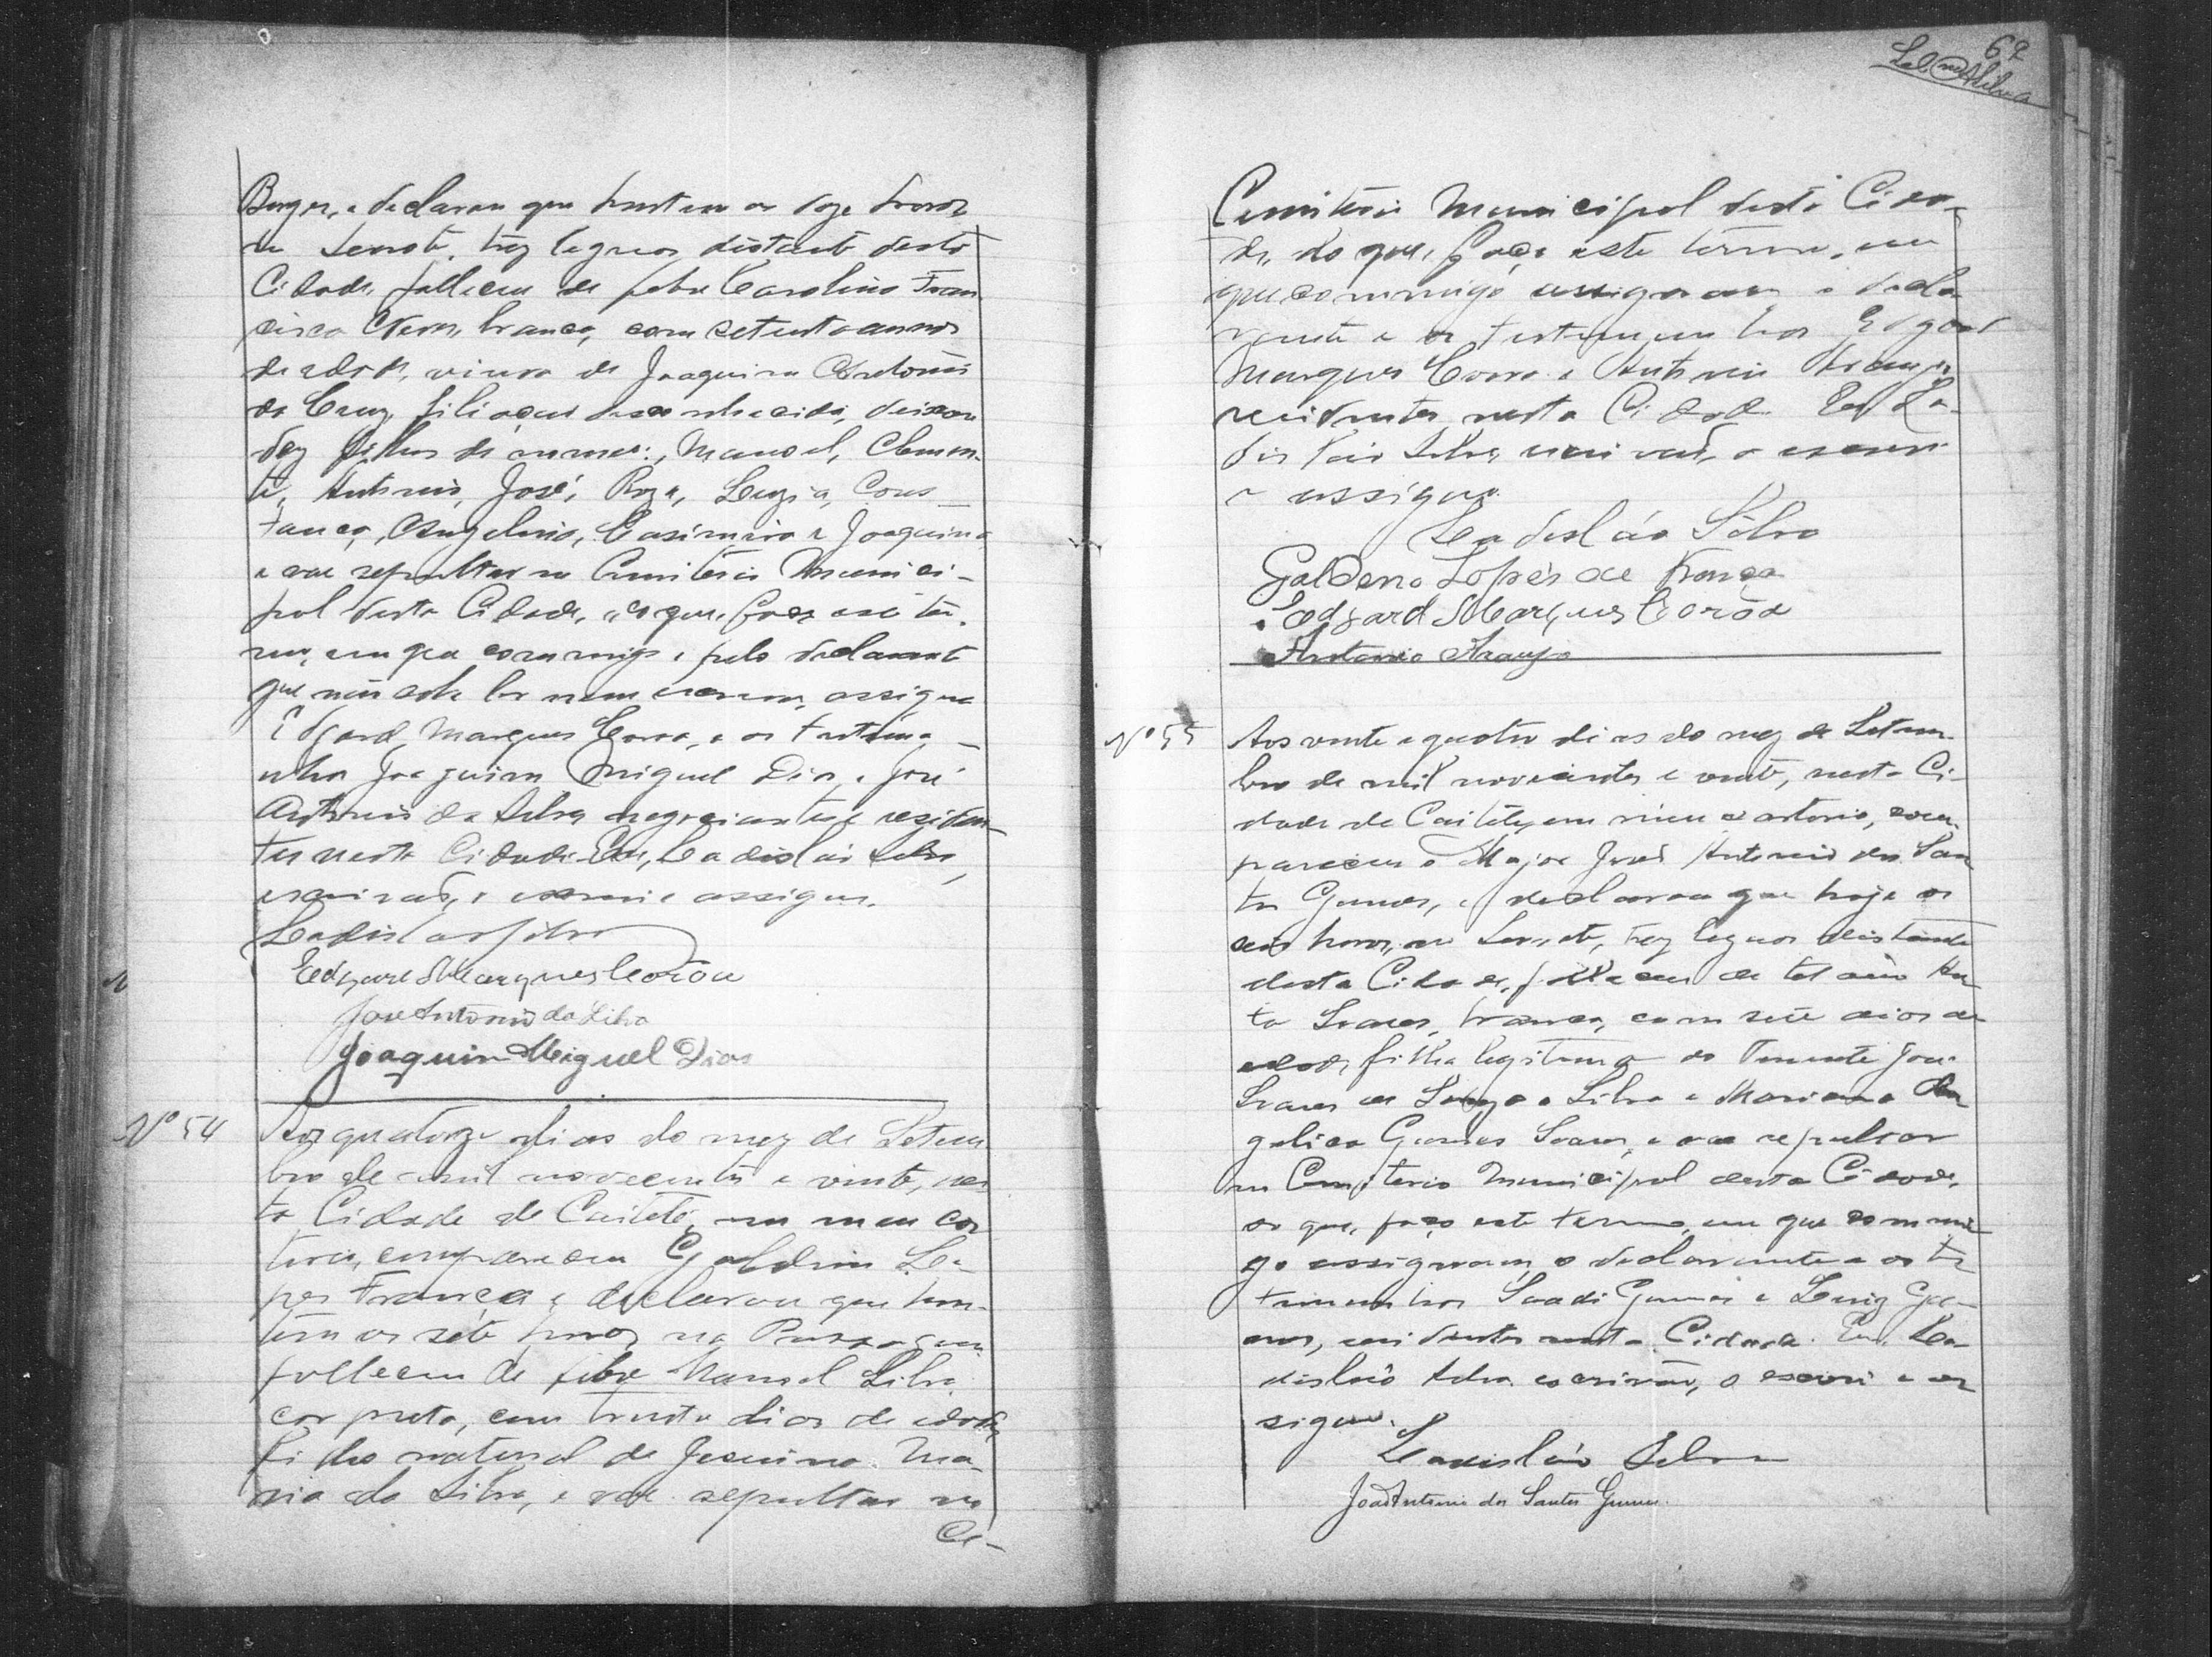 Borges, e declarou que hontem as doze horas
no Serrote, trez leguas distante desta
Cidade, falleceu de febre Carolina Fran
cisca Neves, branca, com setenta annos
de edade, viuva de Joaquim Antonio
da Cruz, filiação desconhecida, deixou
dez filhos de nomes: Manoel, Clemen-
te, Antonio, José, Roza, Luzia, Cons-
tança, Angelina, Casimira e Joaquina
e vae sepultar no Cemiterio Munici-
pal desta Cidade, do que, faço este ter-
mo, em que commigo e pelo declarante
que não sabe ler nem escrever, assigna
Edgard Marques Corôa, e as testemu-
nhas Joaquim Miguel Dias, e José
Antonio da Silva negociantes e residen-
tes nesta Cidade. Eu, Ladisláo Silva,
escrivão, o escrevi e assigno.
Ladislao Silva
Edgard Marques Corôa
José Antonio da Silva
Joaquim Miguel Dias
Nº 54
Aos quatorze dias do mez de Setem
bro de mil novecentos e vinte, nes
ta Cidade de Caiteté, em meu car
torio, compareceu Galdino Lo-
pes França e declarou que hon-
tem as sete horas na
falleceu de febre Manoel Silva
cor preta, com trinta dias de edade,
filho natural de Jesuina Ma-
ria da Silva, e vae sepultar no
Ce-
69
Lad. Silva
Cemiterio Municipal desta Cida-
de, do que, faço este termo, em
que commigo assignam o decla
rante e as testemunhas Edgard
Marques Corôa e Antonio Araujo,
residentes nesta Cidade. Eu La-
disláo Silva, escrivão, o escrevi
e assigno.
Ladisláo Silva
Galdino Lopes de França
Edgard Marques Corôa
Antonio Araujo
Nº 55
Aos vinte e quatro dias do mez de Setem-
bro de mil novecentos e vinte, nesta Ci-
dade de Caiteté, em meu cartorio, com-
pareceu o Major José Antonio dos San
tos Gomes, e declarou que hoje as
seis horas, no Serrote, trez leguas distante
desta Cidade, falleceu de tetano
Soares, branca, com sete dias de
edade, filha legitima do Tenente José
Soares de Souza e Silva e Mariana An
gelica Gomes Soares, e vae sepultar
no Cemiterio Municipal desta Cidade,
do que, faço este termo, em que commi
go assignam o declarante e as tes
temunhas Saadi Gomes e Luiz Go-
mes, residentes nesta Cidade. Eu, La-
disláo Silva escrivão, o escrevi e as
signo.
Ladisláo Silva
José Antonio dos Santos Gomes.